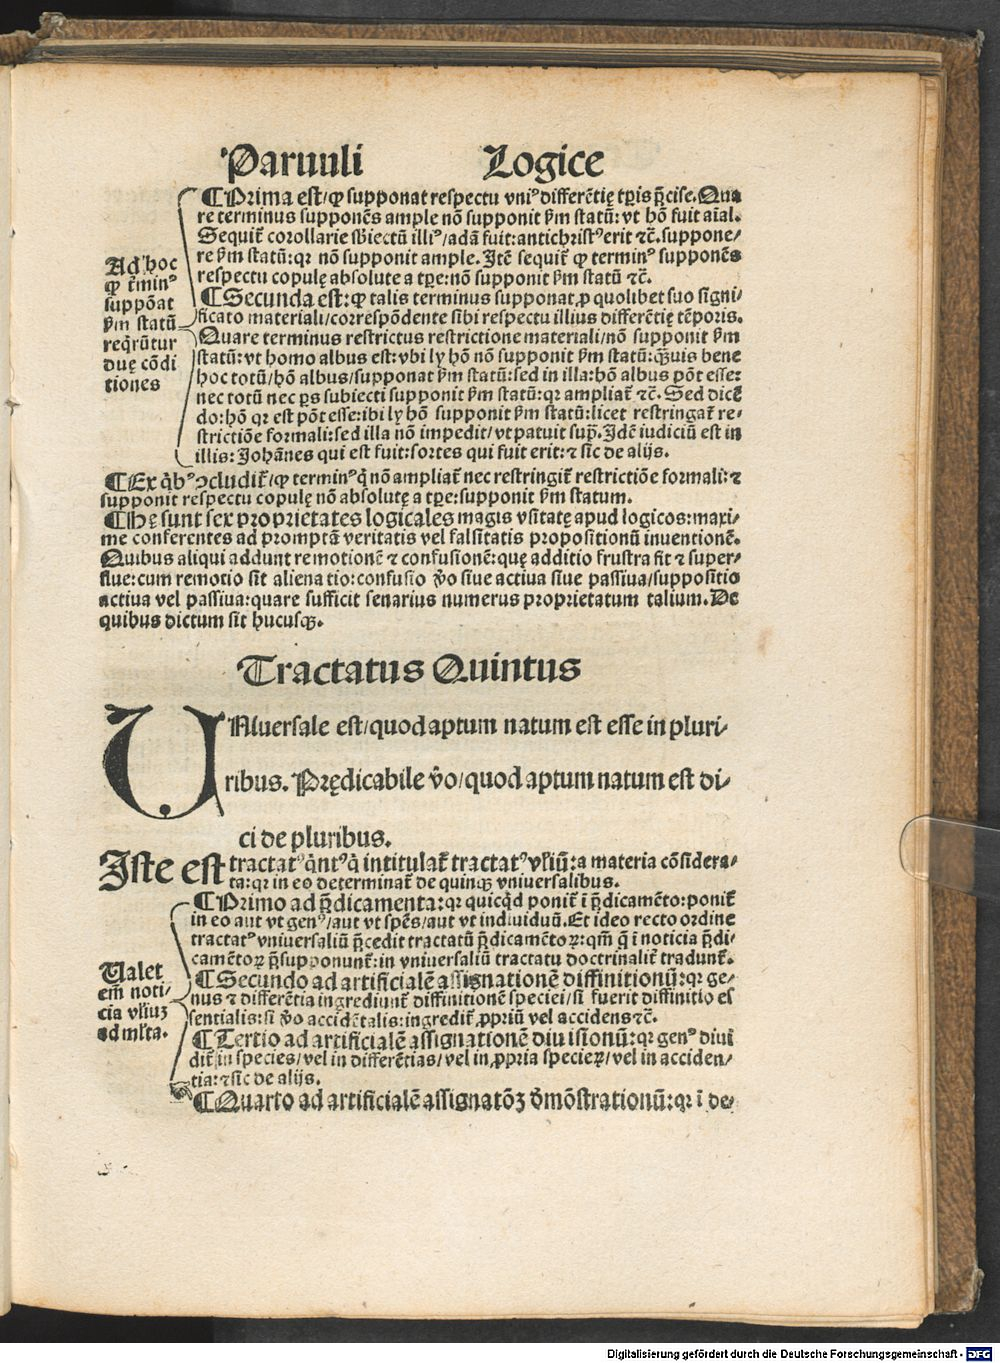 Paruuli Logice
Ad hoc
ꝙ t̄min⁹
suppōat
ẜm statū
reqͥrūtur
duę cōdi
tiones
¶ Prima est/ꝙ supponat respectu vni⁹ differētię tꝑis p̄cise. Qua
re terminus supponēs ample nō supponit ẜm statū: vt hō fuit aīal.
Sequit̄ corollarie sbiectū illi⁹/adā fuit: antichrist⁹ erit ⁊c̄. suppone/
re ẜm statū: qꝛ nō supponit ample. Itē sequit̄ ꝙ termin⁹ supponēs
respectu copulę absolute a tꝑe: nō supponit ẜm statū ⁊c̄.
¶ Secunda est: ꝙ talis terminus supponat ꝓ quolibet suo signi/
ficato materiali/correspōdente sibi respectu illius differētię tēporis.
Quare terminus restrictus restrictione materiali/nō supponit ẜm
statū: vt homo albus est: vbi ly hō nō supponit ẜm statū: q̄uis bene
hoc totū/hō albus/supponat ẜm statū: sed in illa: hō albus pōt esse:
nec totū nec ꝑs subiecti supponit ẜm statū: qꝛ ampliat̄ ⁊c̄. Sed dicē
do: hō qꝛ est pōt esse: ibi ly hō supponit ẜm statū: licet restringat̄ re/
strictiōe formali: sed illa nō impedit/vt patuit supͣ. Idē iudiciū est in
illis: Johānes qui est fuit: sortes qui fuit erit: ⁊ sic de alijs.
¶ Ex qͥb⁹ ꝯcludit̄/ꝙ termin⁹ qͥ nō ampliat̄ nec restringit̄ restrictiōe formali: ⁊
supponit respectu copulę nō absolutę a tꝑe: supponit ẜm statum.
¶ Hę sunt sex proprietates logicales magis vsitatę apud logicos: maxi/
me conferentes ad promptā veritatis vel falsitatis propositionū inuentionē.
Quibus aliqui addunt remotionē ⁊ confusionē: quę additio frustra fit ⁊ super/
flue: cum remotio sit aliena tio: confusio v̄o siue actiua siue passiua/suppositio
actiua vel passiua: quare sufficit senarius numerus proprietatum talium. De
quibus dictum sit hucusqꝫ.
Tractatus Quintus
UNiuersale est/quod aptum natum est esse in pluri/
ribus. Prędicabile v̄o/quod aptum natum est di/
ci de pluribus.
Iste est tractat⁹ qͥnt⁹ qͥ intitulat̄ tractat⁹ vľiū: a materia cōsidera/
ta: qꝛ in eo determinat̄ de quinqꝫ vniuersalibus.
Ualet
em̄ noti/
cia vľiuꝫ
ad mľta.
¶ Primo ad p̄dicamenta: qꝛ quicqͥd ponit̄ ī p̄dicamēto: ponit̄
in eo aut vt gen⁹/aut vt spēs/aut vt indiuiduū. Et ideo recto ordine
tractat⁹ vniuersaliū p̄cedit tractatū p̄dicamētoꝝ: qm̄ q̄ ī noticia p̄di/
camētoꝝ p̄supponunt̄: in vniuersaliū tractatu doctrinalit̄ tradunt̄.
¶ Secundo ad artificialē assignationē diffinitionū: qꝛ ge/
nus ⁊ differētia ingrediunt̄ diffinitionē speciei/si fuerit diffinitio es
sentialis: si v̄o accidētalis: ingredit̄ ꝓpriū vel accidens ⁊c̄.
¶ Tertio ad artificialē assignationē diu isionū: qꝛ gen⁹ diui
dit̄ in species/vel in differētias/vel in ꝓpria specieꝝ/vel in acciden/
tia: ⁊ sic de alijs.
¶ Quarto ad artificialē assignatōꝫ d̄mōstrationū: qꝛ ī de/
Digitalisierung gefördert durch die Deutsche Forschungsgemeinschaft - DFG